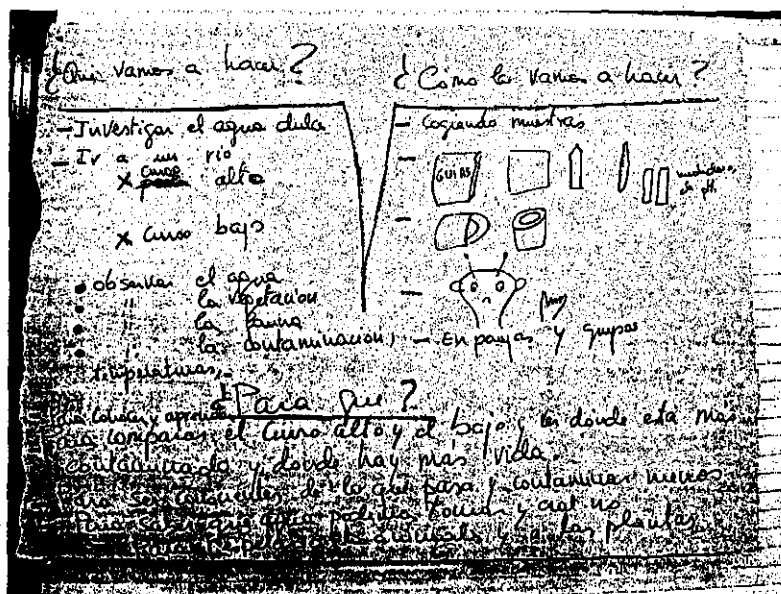 ¿Que vamos a hacer?
- Investigar el agua dulce
- Ir a un río
x curso alto
x curso bajo
• observar el agua
• " la vegetación
• " la fauna
• " la contaminación,
• temperaturas,-
¿Cómo lo vamos a hacer?
- Cogiendo muestras
- GUIAS
medidores de pH
-
-
- En parejas y grupos
¿Para que?
conocer, aprender
para comparar el curso alto y el bajo y ver dónde está más
contaminado y donde hay más vida.
Para ser conscientes de lo que pasa y contaminar menos
Para saber que agua podemos tomar y cual no
Para respetar a los animales y a las plantas